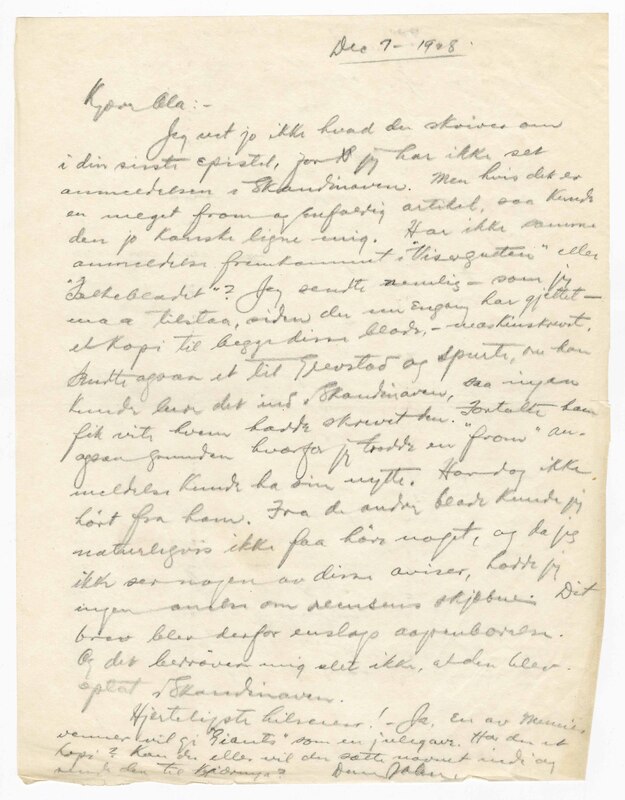 Dec 7 - 1928.
Kjære Ola:-
Jeg vet jo ikke hvad du skriver om
i din siste epistel, for jeg har ikke set
anmeldelsen i Skandinaven. Men hvis det er
en meget from og enfoldig artikel, saa kunde
den jo kanske ligne mig. Har ikke samme
anmeldelse fremkommet i "Visergutten" eller
"Folkebladet"? Jeg sendte nemlig - som jeg
maa tilstaa, siden du nu engang har gjettet -
et kopi til begge disse blade, - maskinskrevet.
Sendte ogsaa et til Grevstad og spurte, om han
kunde faa det ind i Skandinaven, saa ingen
fik vite hvem hadde skrevet den. Fortalte ham
ogsaa grunden hvorfor jeg trodde en "from" an-
meldelse kunde ha sin nytte. Har dog ikke
hørt fra ham. Fra de andre blade kunde jeg
naturligvis ikke faa høre noget, og da jeg
ikke ser nogen av disse aviser, hadde jeg
ingen anelse om recensens skjæbne. Dit
brev blev derfor enslags aapenbarelse.
Og det bedrøver mig slet ikke, at den blev
optat i Skandinaven.
Hjerteligste hilsener! - Ja, en av Minnies
venner vil gi "Giants" som en julegave. Har du et
kopi? Kan du eller vil du sætte navnet inde og
sende den til
Din John.